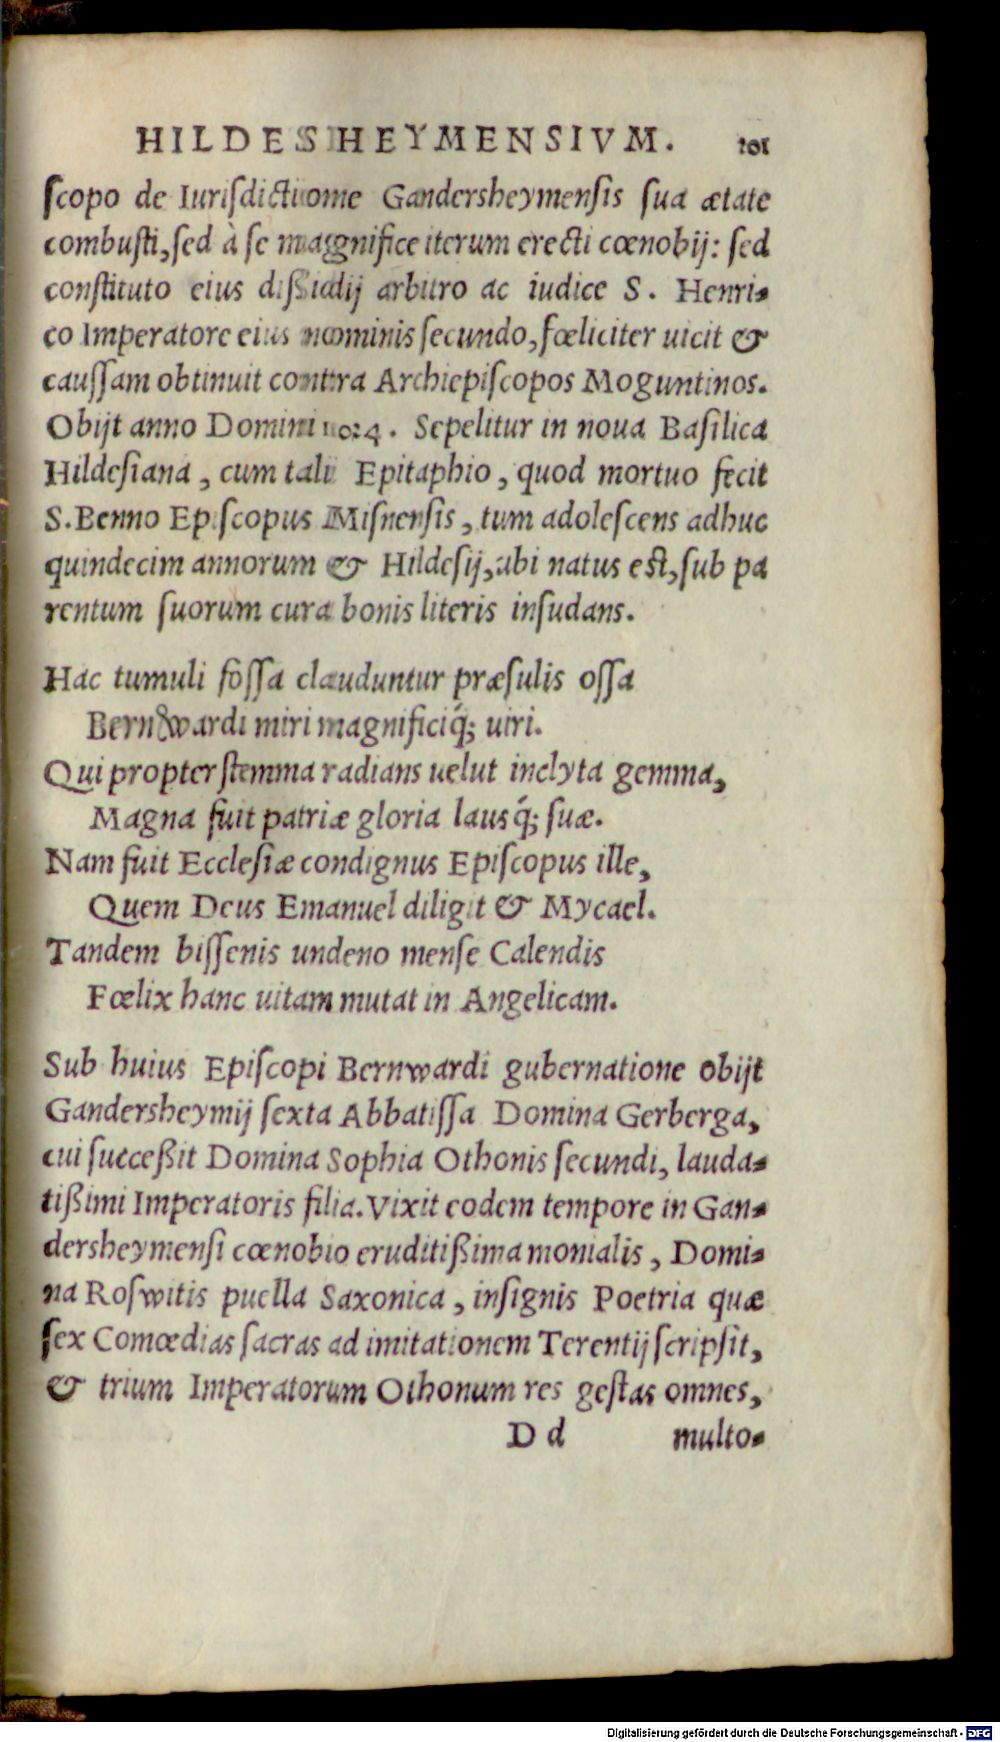 HILDESHEYMENSIVM. 101
ſcopo de Iuriſdictiome Gandersheymenſis ſua ætate
combuſti, ſed à ſe magnifice iterum erecti cœnobij: ſed
conſtituto eius dißidij arbitro ac iudice S. Henri-
co Imperatore eius nominis ſecundo, fœliciter uicit &
cauſſam obtinuit contra Archiepiſcopos Moguntinos.
Obijt anno Domini 1024. Sepelitur in noua Baſilica
Hildeſiana, cum tali Epitaphio, quod mortuo fecit
S. Benno Epiſcopus Miſnenſis, tum adoleſcens adhuc
quindecim annorum & Hildeſij, ubi natus eſt, ſub pa
rentum ſuorum cura bonis literis inſudans.
Hac tumuli foſſa clauduntur præſulis oſſa
Bernwardi miri magnificiq́; uiri.
Qui propter ſtemma radians uelut inclyta gemma,
Magna fuit patriæ gloria lausq́; ſuæ.
Nam fuit Eccleſiæ condignus Epiſcopus ille,
Quem Deus Emanuel diligit & Mycael.
Tandem biſſenis undeno menſe Calendis
Fœlix hanc uitam mutat in Angelicam.
Sub huius Epiſcopi Bernwardi gubernatione obijt
Gandersheymij ſexta Abbatiſſa Domina Gerberga,
cui ſucceßit Domina Sophia Othonis ſecundi, lauda-
tißimi Imperatoris filia. Vixit eodem tempore in Gan-
dersheymenſi cœnobio eruditißima monialis, Domi-
na Roſwitis puella Saxonica, inſignis Poetria quæ
ſex Comœdias ſacras ad imitationem Terentij ſcripſit,
& trium Imperatorum Othonum res geſtas omnes,
D d multo-
Digitalisierung gefördert durch die Deutsche Forschungsgemeinschaft - DFG